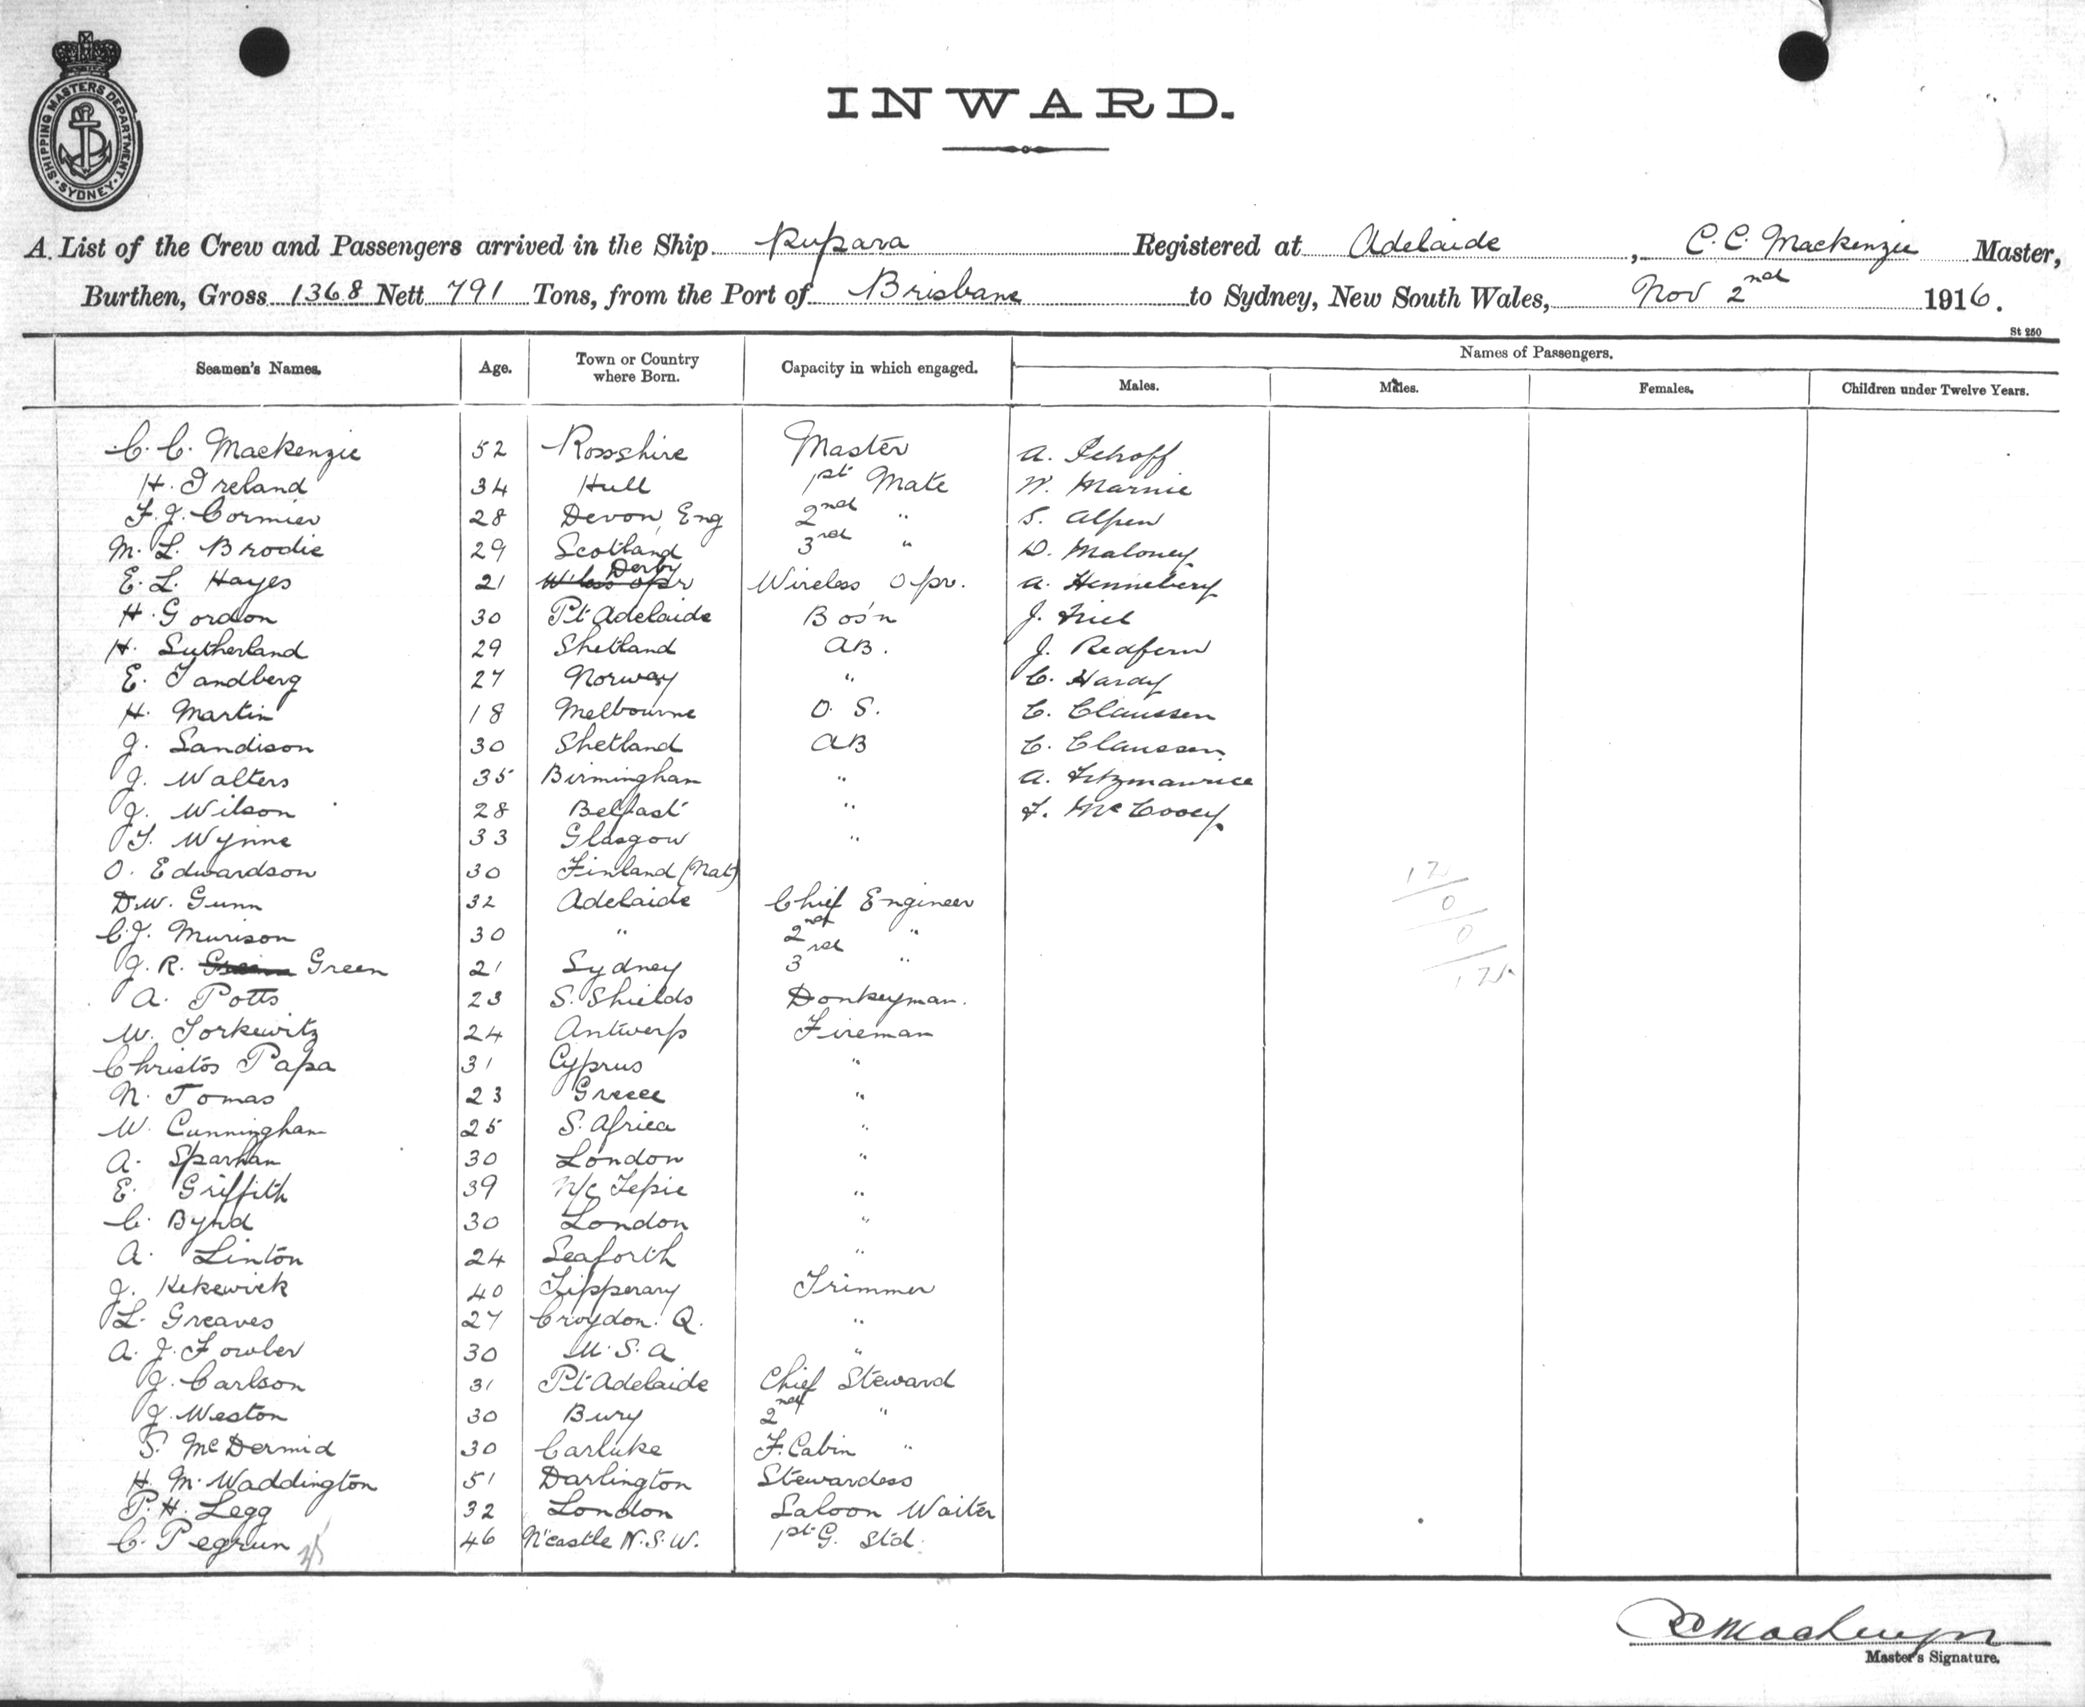 SHIPPING MASTERS DEPARTMENT
SYDNEY
INWARD.
A List of the Crew and Passengers arrived in the Ship Rupara Registered at Adelaide, C. C. Mackenzie Master,
Burthen, Gross 1368 Nett 791 Tons, from the Port of Brisbane to Sydney, New South Wales, Nov 2nd 1916.
St 250
Seamen's Names. Age. Town or Country where Born. Capacity in which engaged. Names of Passengers.
Males. Males. Females. Children under Twelve Years.
C. C. Mackenzie 52 Rossshire Master A.
H. Ireland 34 Hull 1st Mate W. Marnie
F. J. Cormier 28 Devon, Eng 2nd " S. Alpen
M. L. Brodie 29 Scotland 3rd " D. Maloney
E. L. Hayes 21 Derby Wireless Opr. A. Hennebery
H. Gordon 30 Pt Adelaide Bos'n J. Friel
H. Sutherland 29 Shetland AB. J. Redfern
E. Sandberg 27 Norway " C. Hardy
H. Martin 18 Melbourne O. S. C. Claussen
J. Sandison 30 Shetland AB C. Claussen
J. Walters 35 Birmingham " A. Fitzmaurice
J. Wilson 28 Belfast " F. McCooey
T. Wynne 33 Glasgow "
O. Edwardson 30 Finland (Nat)
D. W. Gunn 32 Adelaide Chief Engineer
C. J. Murison 30 " 2nd "
J. R. Green 21 Sydney 3rd "
A. Potts 23 S. Shields Donkeyman.
W. Torkewitz 24 Antwerp Fireman
Christos Papa 31 Cyprus "
N. Tomas 23 Greece "
W. Cunningham 25 S. Africa "
A. Sparhan 30 London "
E. Griffith 39 "
C. Byrd 30 London "
A. Linton 24 Seaforth "
J. Kekewick 40 Tipperary Trimmer
L. Greaves 27 Croydon. Q. "
A. J. Fowler 30 U. S. A "
J. Carlson 31 Pt Adelaide Chief Steward
J. Weston 30 Bury 2nd "
S. McDermid 30 Carluke F. Cabin "
H. M. Waddington 51 Darlington Stewardess
P. H. Legg 32 London Saloon Waiter
C. Pegrun 46 N'castle N.S.W. 1st G. Std.
Master's Signature.